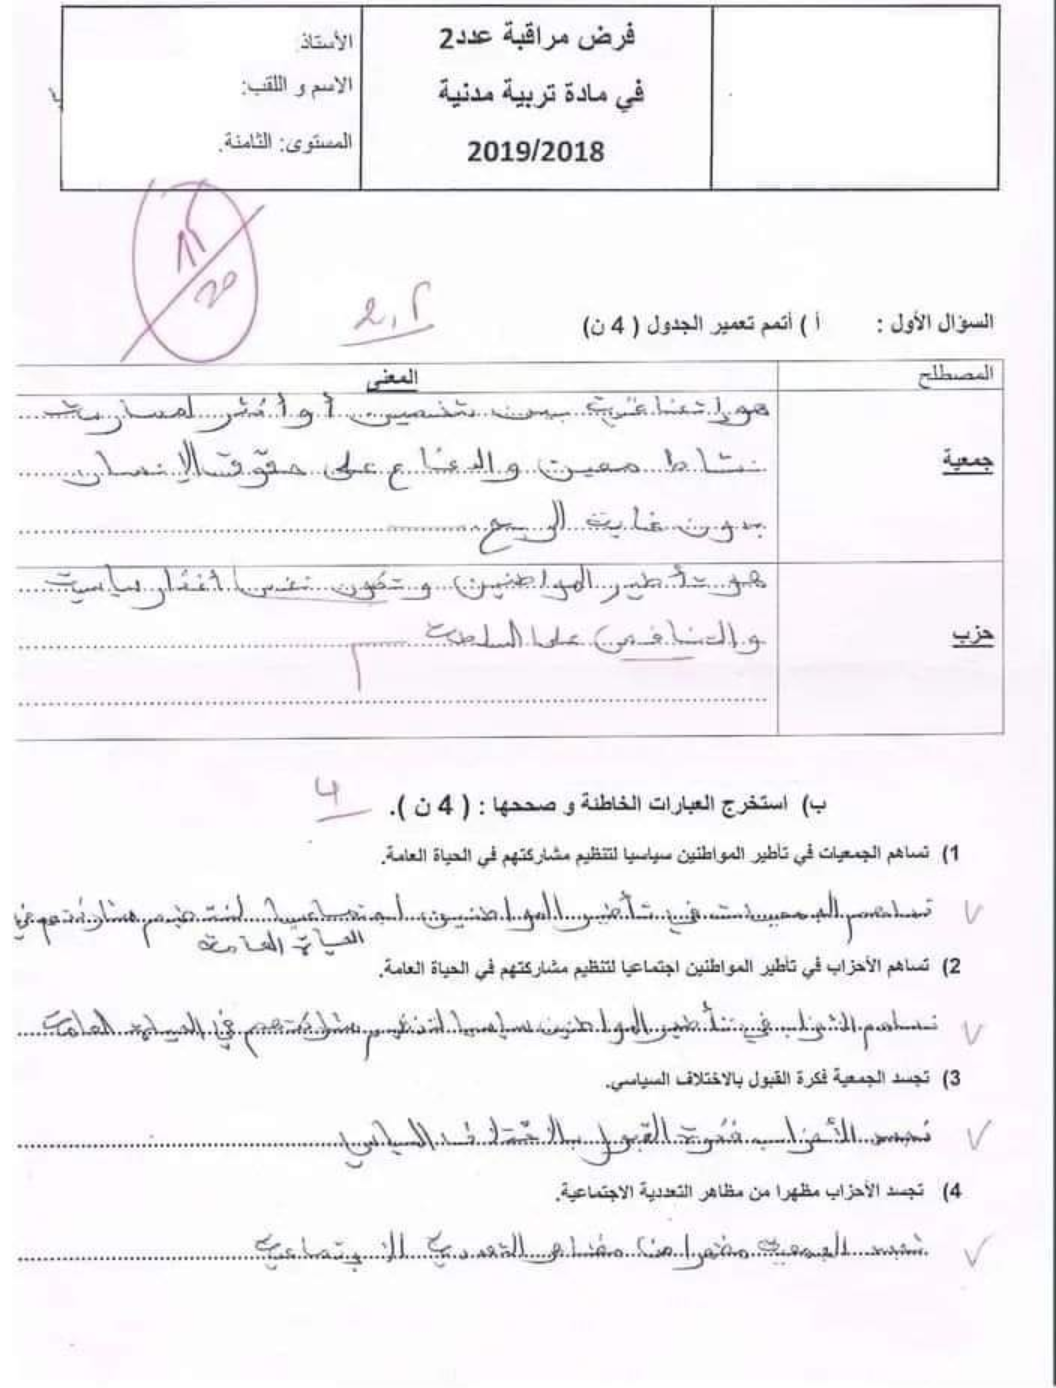 فرض مراقبة عدد2
في مادة تربية مدنية
2019/2018
الأستاذ
الاسم و اللقب:
المستوى: الثامنة.
20
السؤال الأول : أ ) أتمم تعمير الجدول ( 4 ن)
المصطلح المعنى
جمعية
هو اتفاقية بين شخصين أو أكثر لممارسة
نشاط معين والدفاع على حقوق الإنسان
بدون غاية الربح
حزب
هو تأطير المواطنين وتكون نفس أفكار سياسية
والتنافس على السلطة
ب) استخرج العبارات الخاطئة و صححها : ( 4 ن ).
4
1) تساهم الجمعيات في تأطير المواطنين سياسيا لتنظيم مشاركتهم في الحياة العامة.
تساهم الجمعيات في تأطير المواطنين اجتماعيا لتنظيم مشاركتهم في
الحياة العامة
2) تساهم الأحزاب في تأطير المواطنين اجتماعيا لتنظيم مشاركتهم في الحياة العامة.
تساهم الأحزاب في تأطير المواطنين سياسيا لتنظيم مشاركتهم في الحياة العامة
3) تجسد الجمعية فكرة القبول بالاختلاف السياسي.
تجسد الأحزاب فكرة القبول بالاختلاف السياسي
4) تجسد الأحزاب مظهرا من مظاهر التعددية الاجتماعية.
تجسد الجمعية مظهرا من مظاهر التعددية الاجتماعية